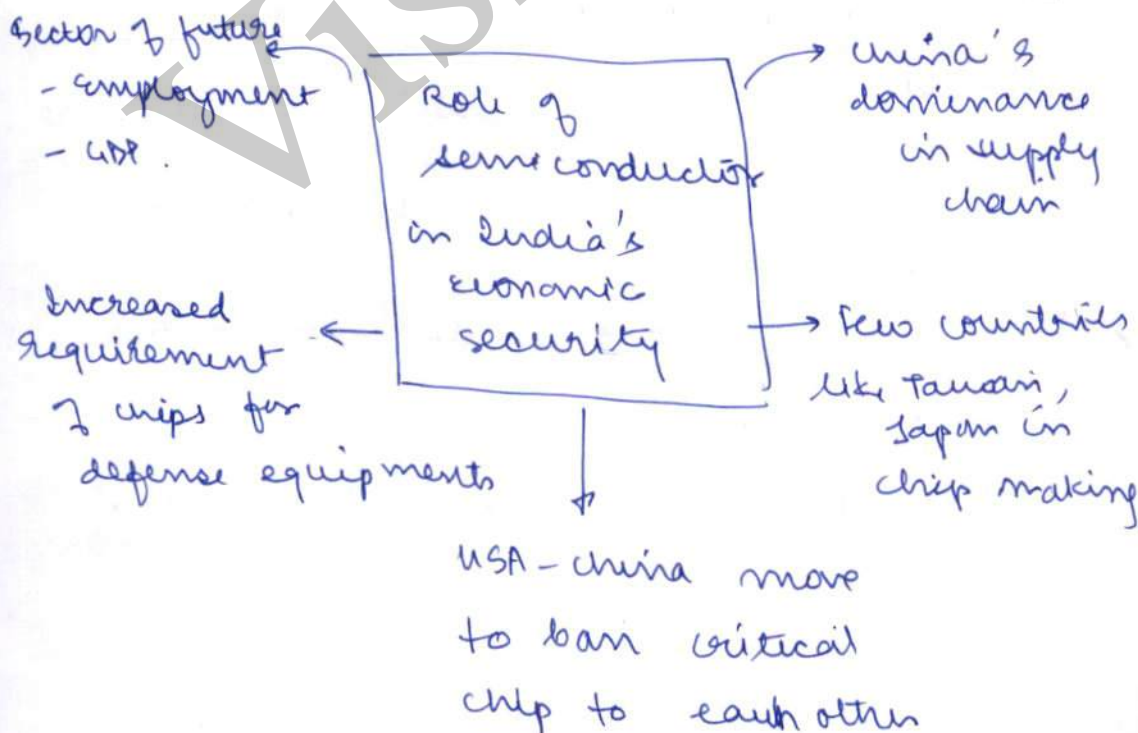 Sector of future
- Employment
- GDP.
Role of
semiconductor
in India's
economic
security
China's
dominance
in supply
chain
Increased
requirement
of chips for
defense equipments
Few countries
like Taiwan,
Japan in
chip making
USA - China move
to ban critical
chip to each other
Vis